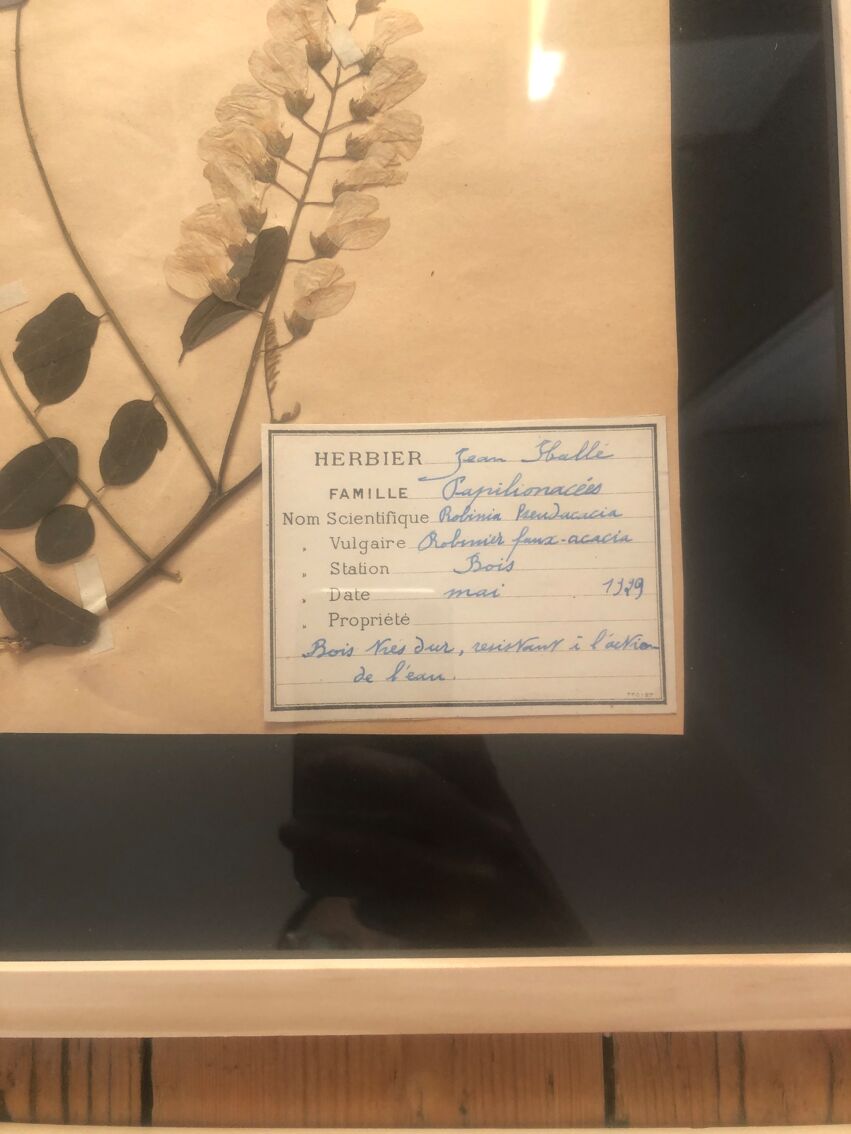 HERBIER Jean Hallé
FAMILLE Papilionacées
Nom Scientifique Robinia Pseudacacia
„ Vulgaire Robinier faux-acacia
„ Station Bois
„ Date mai 1929
„ Propriété
Bois très dur, résistant à l'action
de l'eau.